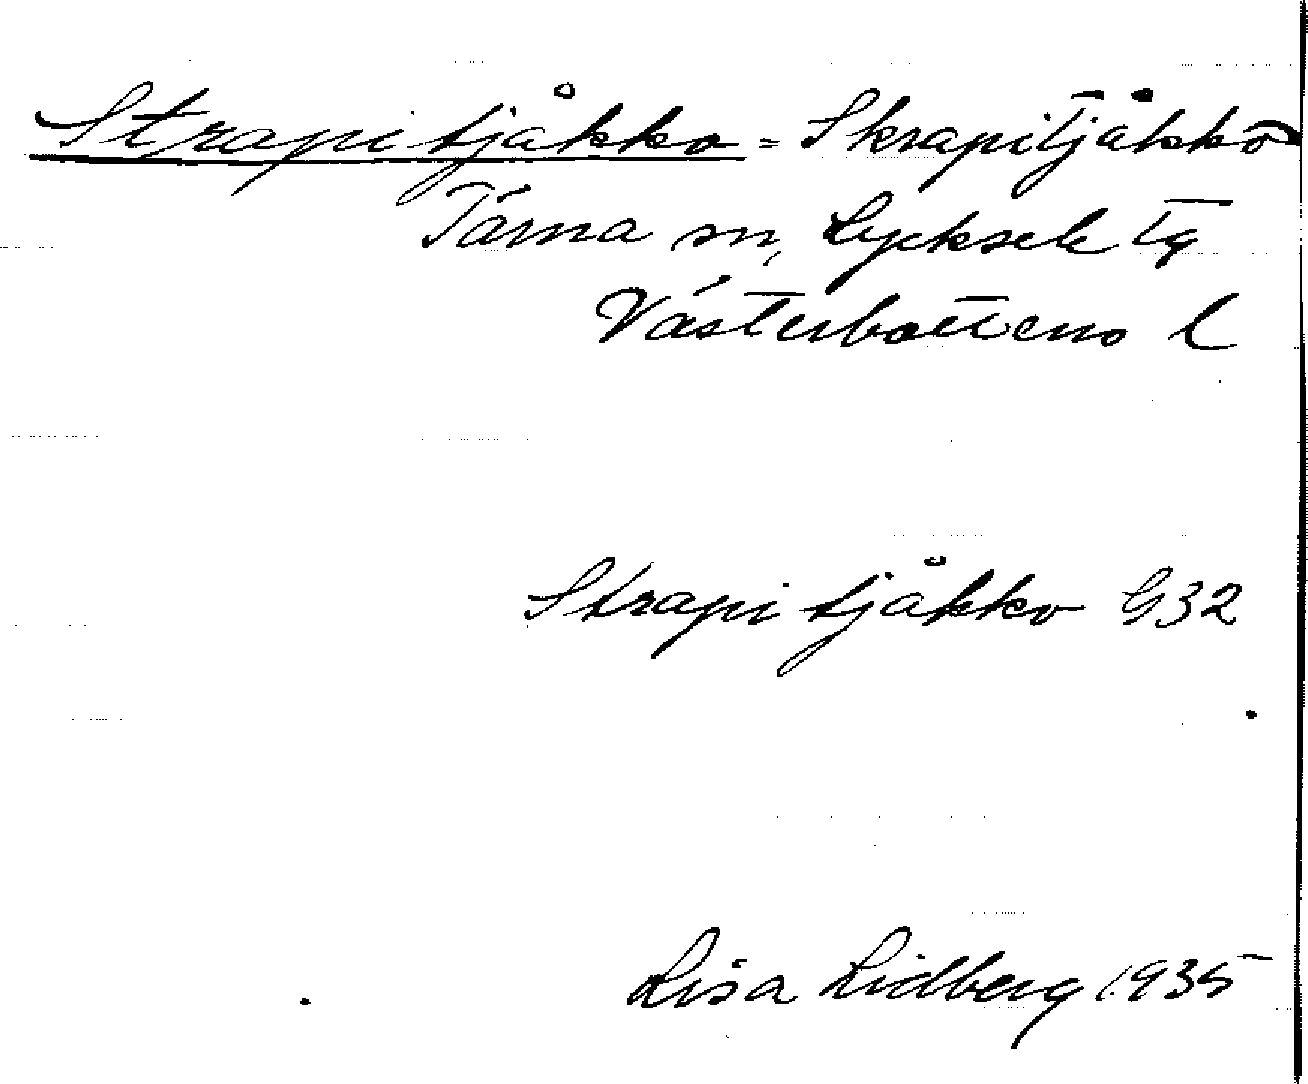 Strapi tjåkko = Skrapitjåkkō
Tärna sn, Lycksele lg
Västerbottens l
Strapi tjåkko G32
Lisa Lidberg 1935